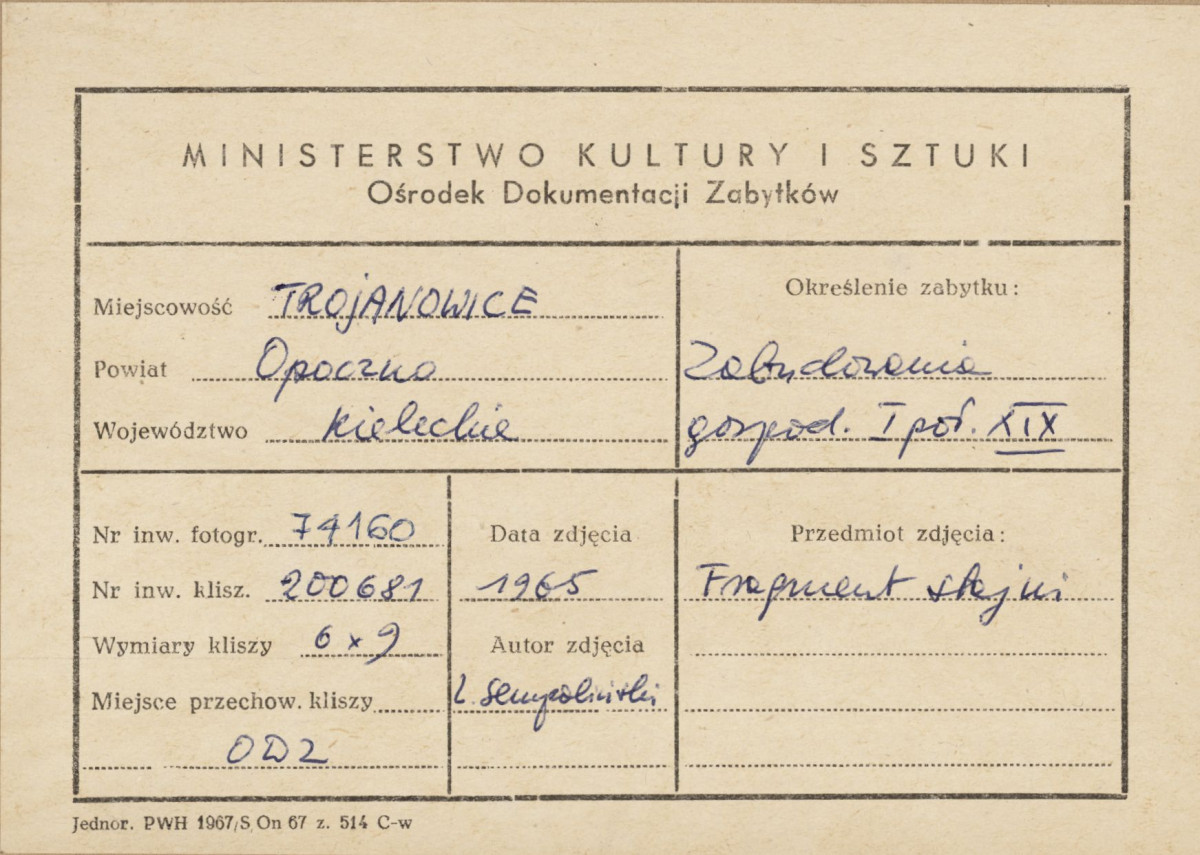 MINISTERSTWO KULTURY I SZTUKI
Ośrodek Dokumentacji Zabytków
Miejscowość TROJANOWICE
Powiat Opoczno
Województwo kieleckie
Określenie zabytku:
Zabudowania
gospod. I poł. XIX
Nr inw. fotogr. 74160
Nr inw. klisz. 200681
Wymiary kliszy 6 x 9
Miejsce przechow. kliszy
ODZ
Data zdjęcia
1965
Autor zdjęcia
L. Sempoliński
Przedmiot zdjęcia:
Fragment stajni
Jednor. PWH 1967/S On 67 z. 514 C-w